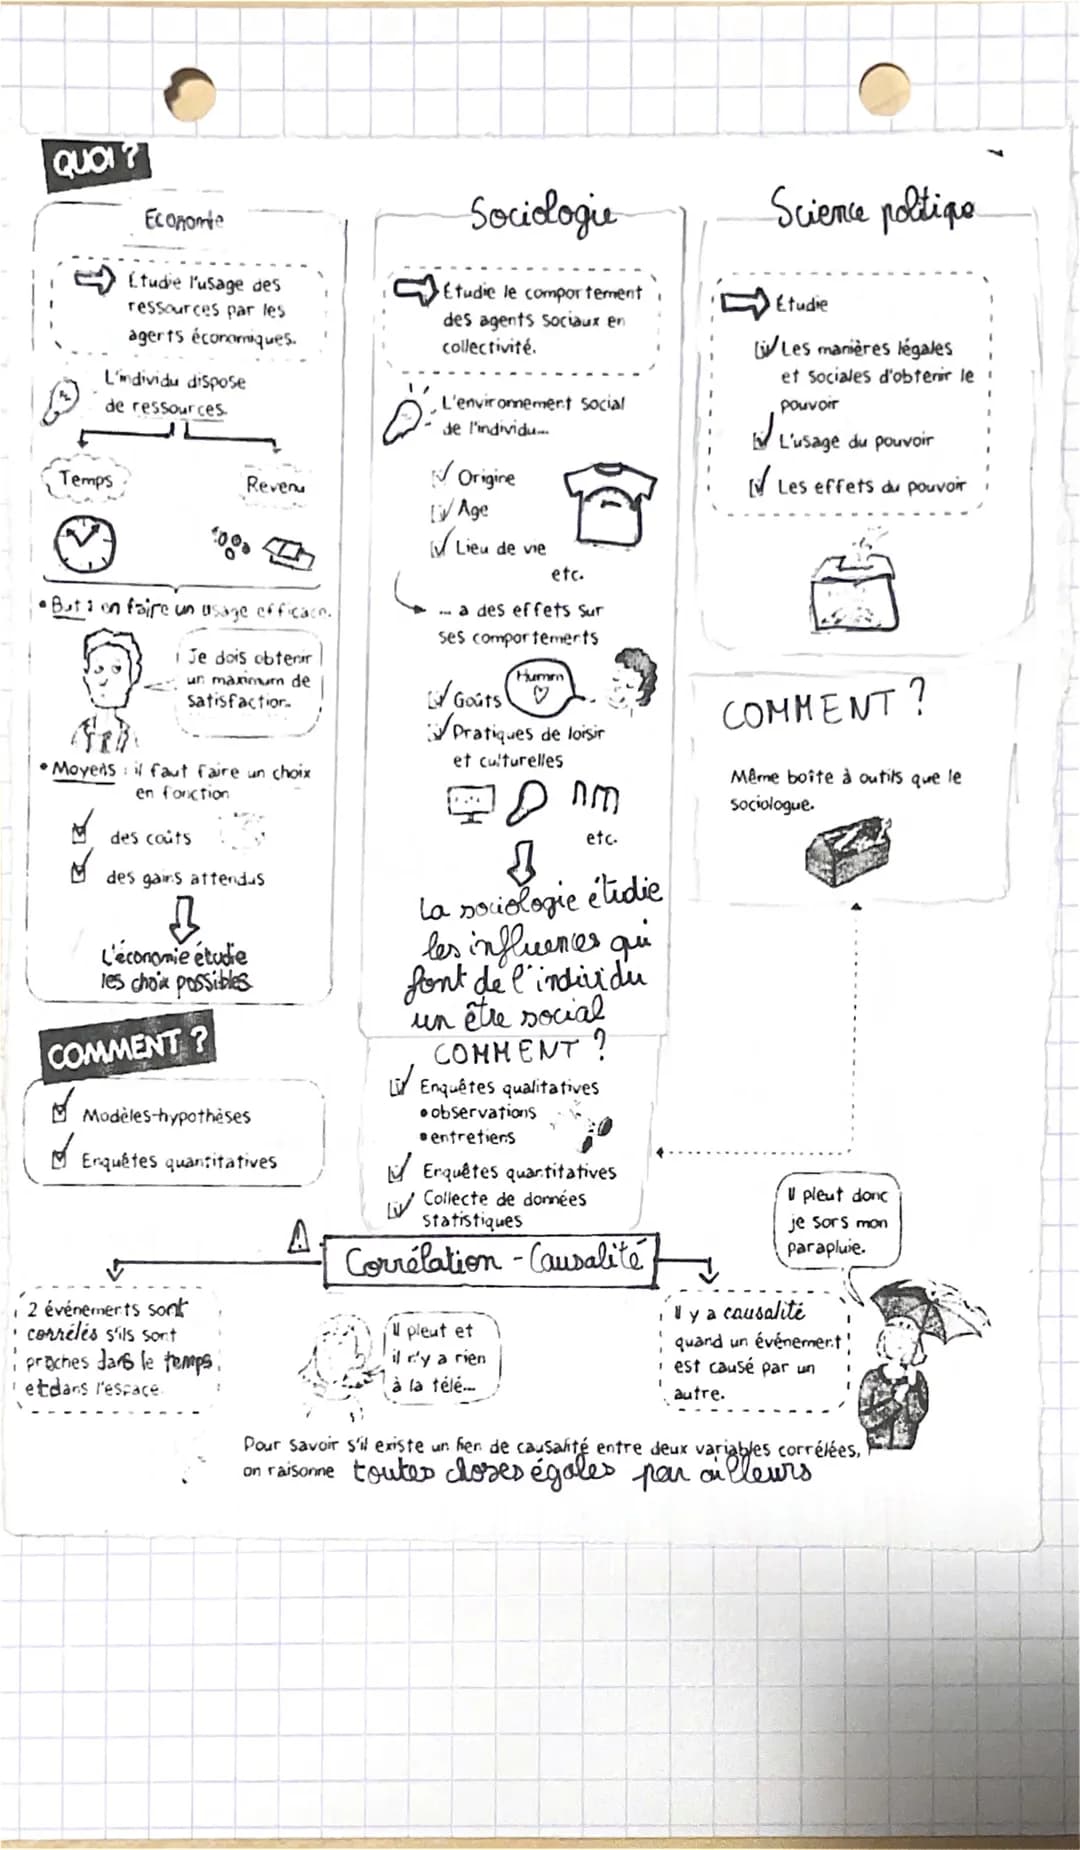 QUOI ?
Economie
Etudie l'usage des
ressources par les
agents économiques.
L'individu dispose
de ressources.
Temps
Revenu
• But : en faire un usage efficace.
Je dois obtenir
un maximum de
satisfaction.
• Moyens : il faut faire un choix
en fonction
des coûts
des gains attendus
L'économie étudie
les choix possibles
COMMENT ?
Modèles-hypothèses
Enquêtes quantitatives
Sociologie
Etudie le comportement
des agents sociaux en
collectivité.
L'environnement social
de l'individu...
Origine
Age
Lieu de vie
etc.
... a des effets sur
ses comportements
Humm
Goûts
Pratiques de loisir
et culturelles
etc.
La sociologie étudie
les influences qui
font de l'individu
un être social
COMMENT ?
Enquêtes qualitatives
• observations
• entretiens
Enquêtes quantitatives
Collecte de données
statistiques
Science politique
Etudie
Les manières légales
et sociales d'obtenir le
pouvoir
L'usage du pouvoir
Les effets du pouvoir
COMMENT ?
Même boîte à outils que le
sociologue.
Corrélation - Causalité
2 événements sont
corrélés s'ils sont
proches dans le temps
et dans l'espace.
Il pleut et
il n'y a rien
à la télé...
Il y a causalité
quand un événement
est causé par un
autre.
Il pleut donc
je sors mon
parapluie.
Pour savoir s'il existe un lien de causalité entre deux variables corrélées,
on raisonne toutes choses égales par ailleurs